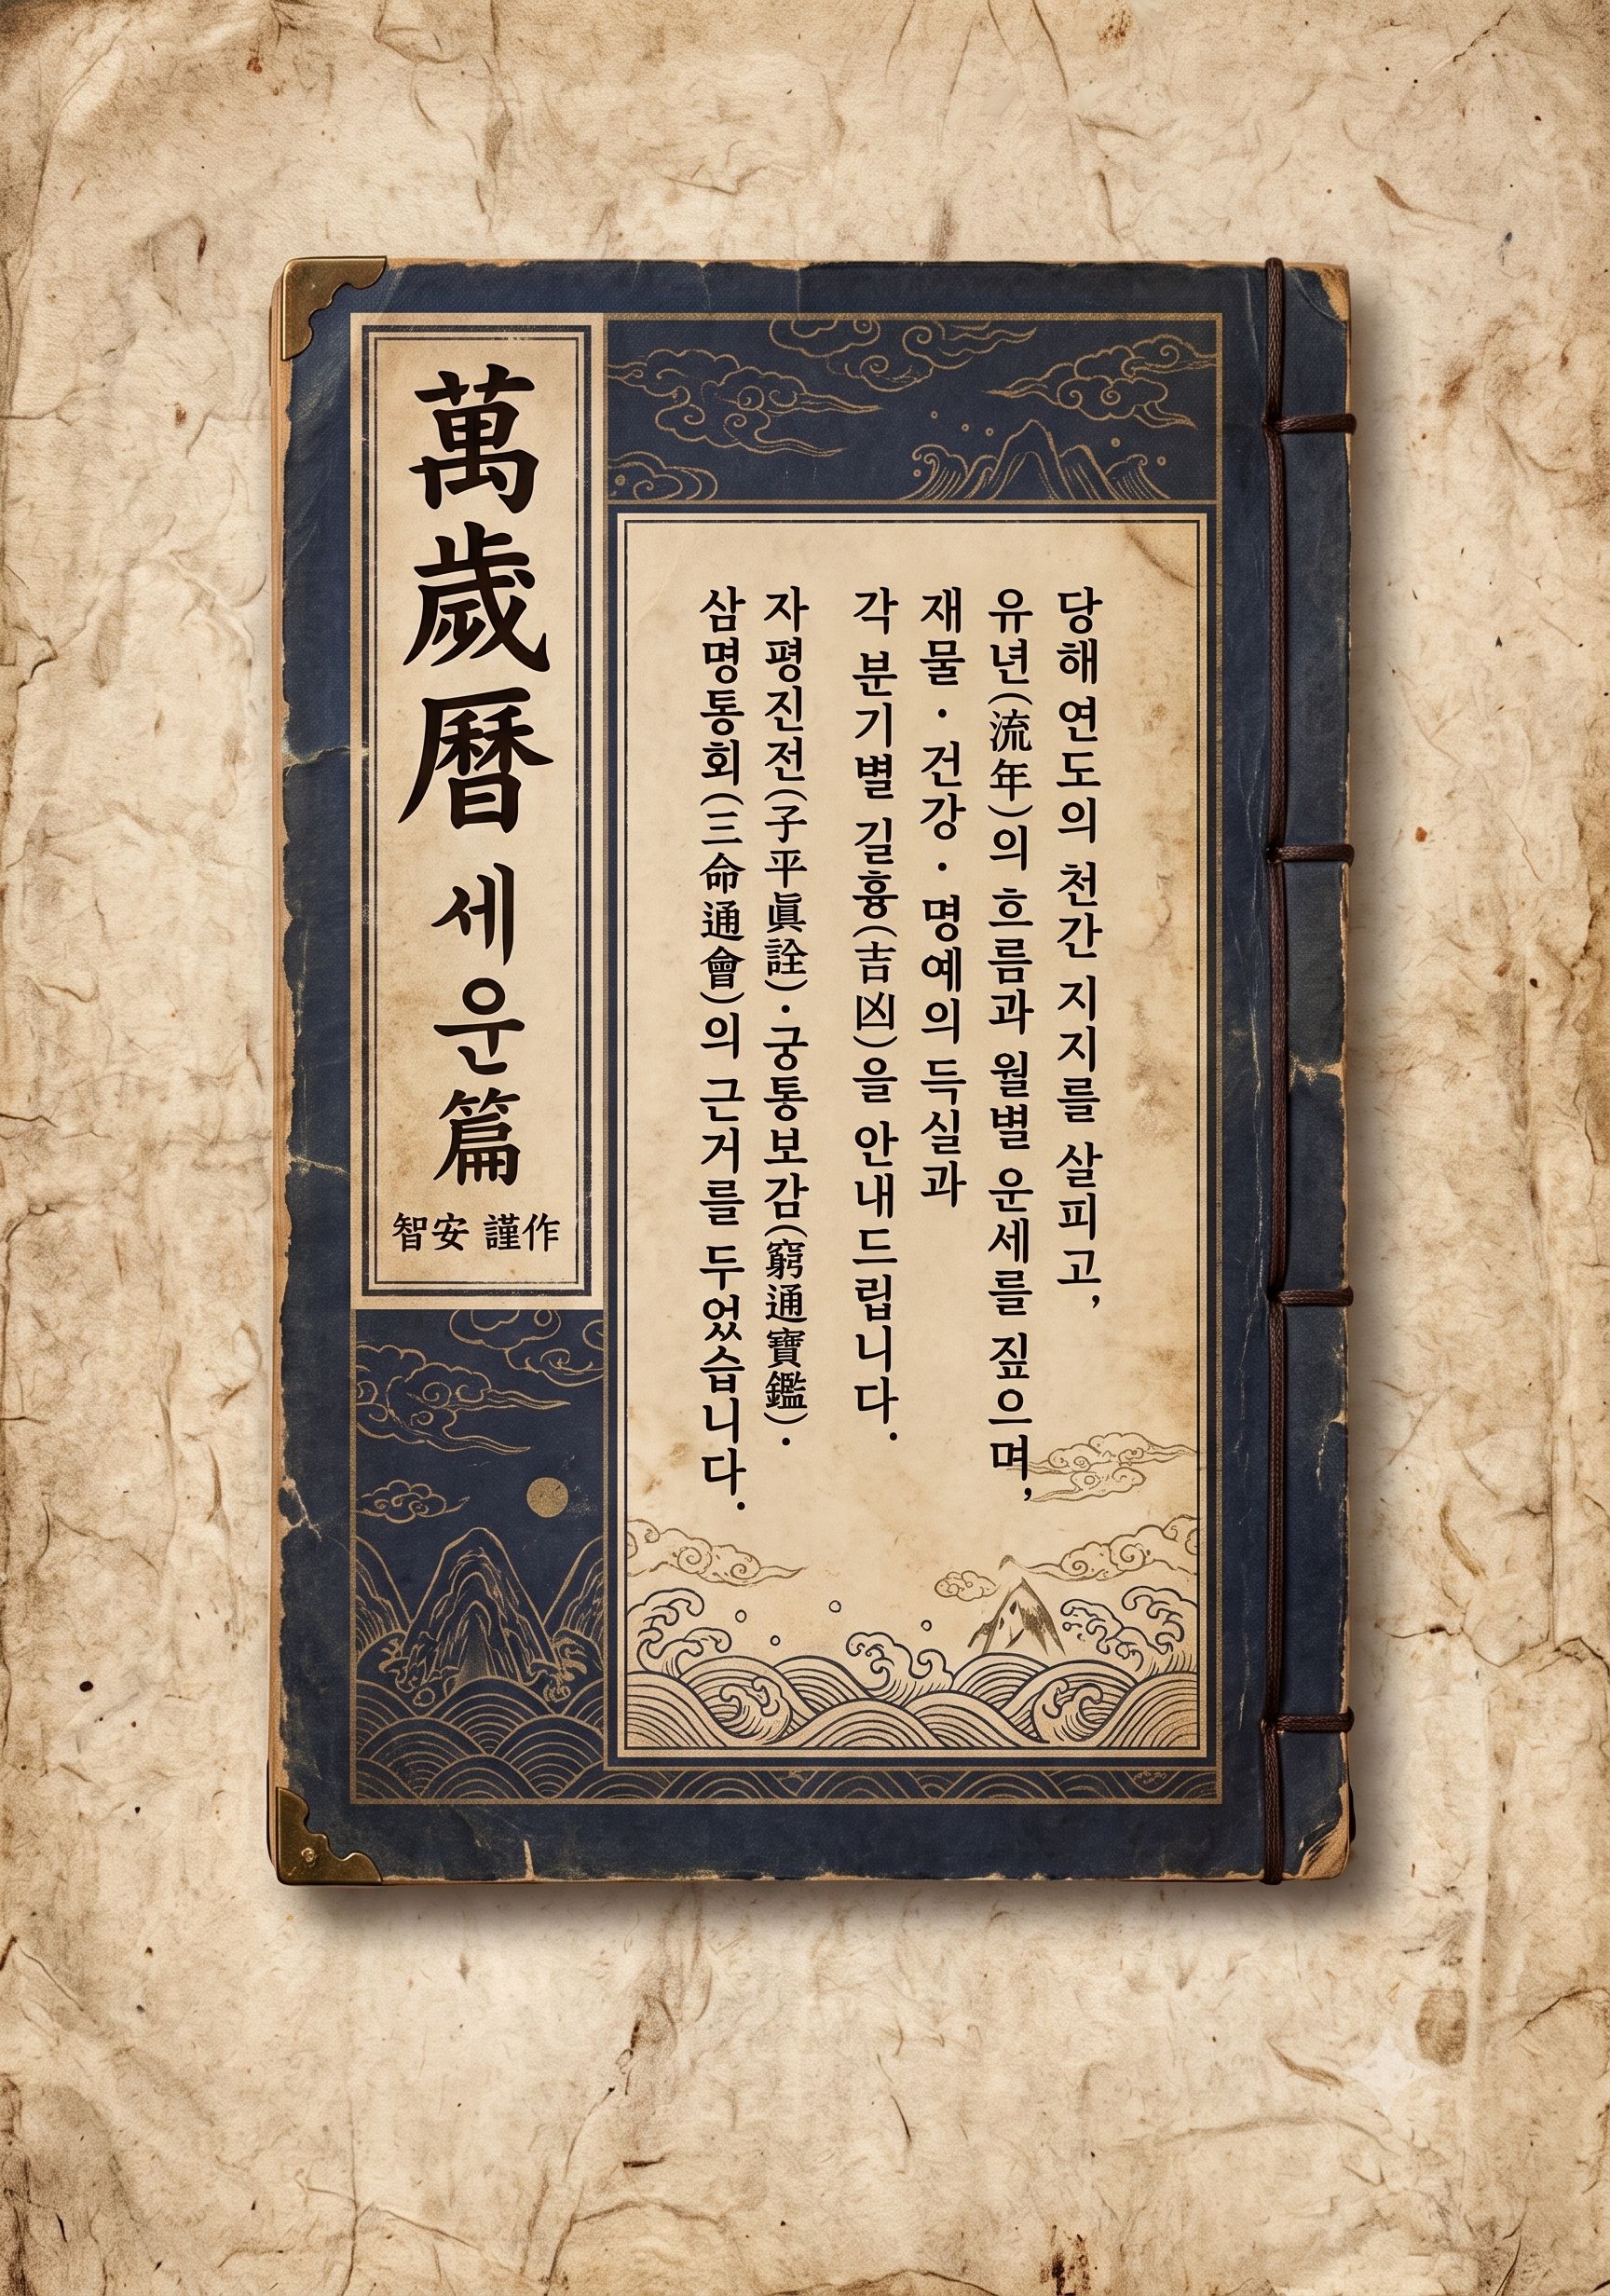 萬歲曆 세운篇
智安 謹作
당해 연도의 천간 지지를 살피고,
유년(流年)의 흐름과 월별 운세를 짚으며,
재물·건강·명예의 득실과
각 분기별 길흉(吉凶)을 안내드립니다.
자평진전(子平眞詮)·궁통보감(窮通寶鑑)·
삼명통회(三命通會)의 근거를 두었습니다.